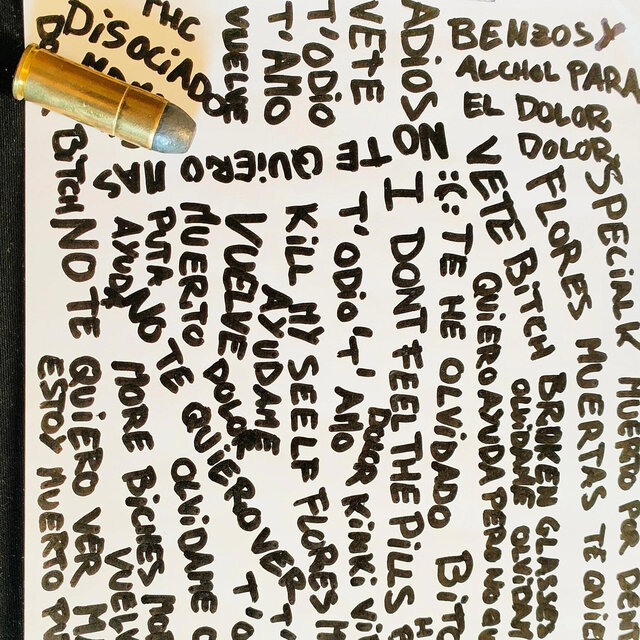 THC
DISOCIADO
BENZOS Y
ALCHOL PARA
EL DOLOR
DOLOR
SPECIAL K
FLORES MUERTAS TE
MUERTO POR
VETE BITCH
BROKEN GLASSES
OLVIDAME
QUIERO AYUDA PERO NO
ADIOS
:(: TE HE OLVIDADO
NO TE QUIERO MAS
I DONT FEEL THE PILLS
VETE
T'ODIO
T' AMO
VUELVE
T'ODIO 'T' AMO
DOLOR KINKI
KILL MY SEELF FLORES
AYUDAME
VUELVE
DOLOR
MUERTO
PUTA
AYUDA
NO TE QUIERO VER
T'O
OLVIDAME
MORE BICHES
VUELV
BITCH
NO TE
QUIERO VER
ESTOY MUERTO